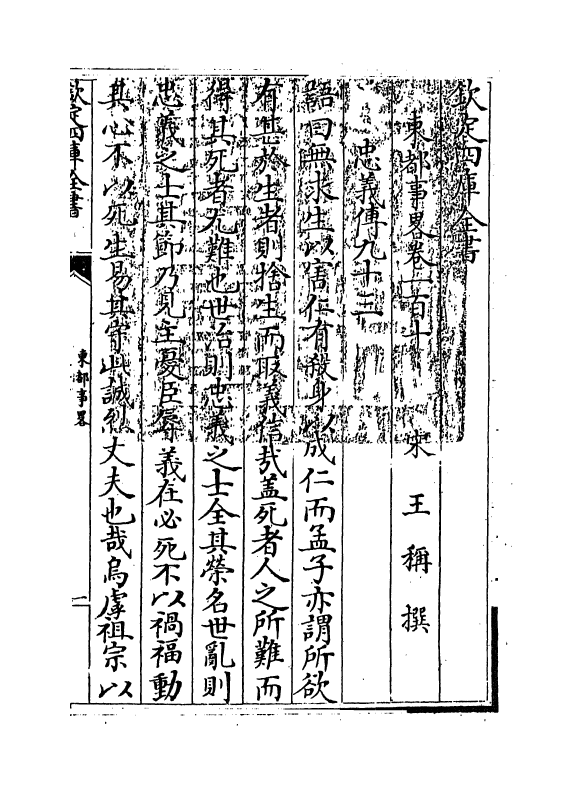 欽定四庫全書
東都事畧卷一百十　宋　王稱　撰
忠義傳九十三
語曰無求生以害仁有殺身以成仁而孟子亦謂所欲
有甚於生者則捨生而取義信哉盖死者人之所難而
得其死者尤難也世治則忠義之士全其榮名世亂則
忠義之士其節乃見主憂臣辱義在必死不以禍福動
其心不以死生易其守此誠烈丈夫也哉烏虖祖宗以
欽定四庫全書
東都事畧
一